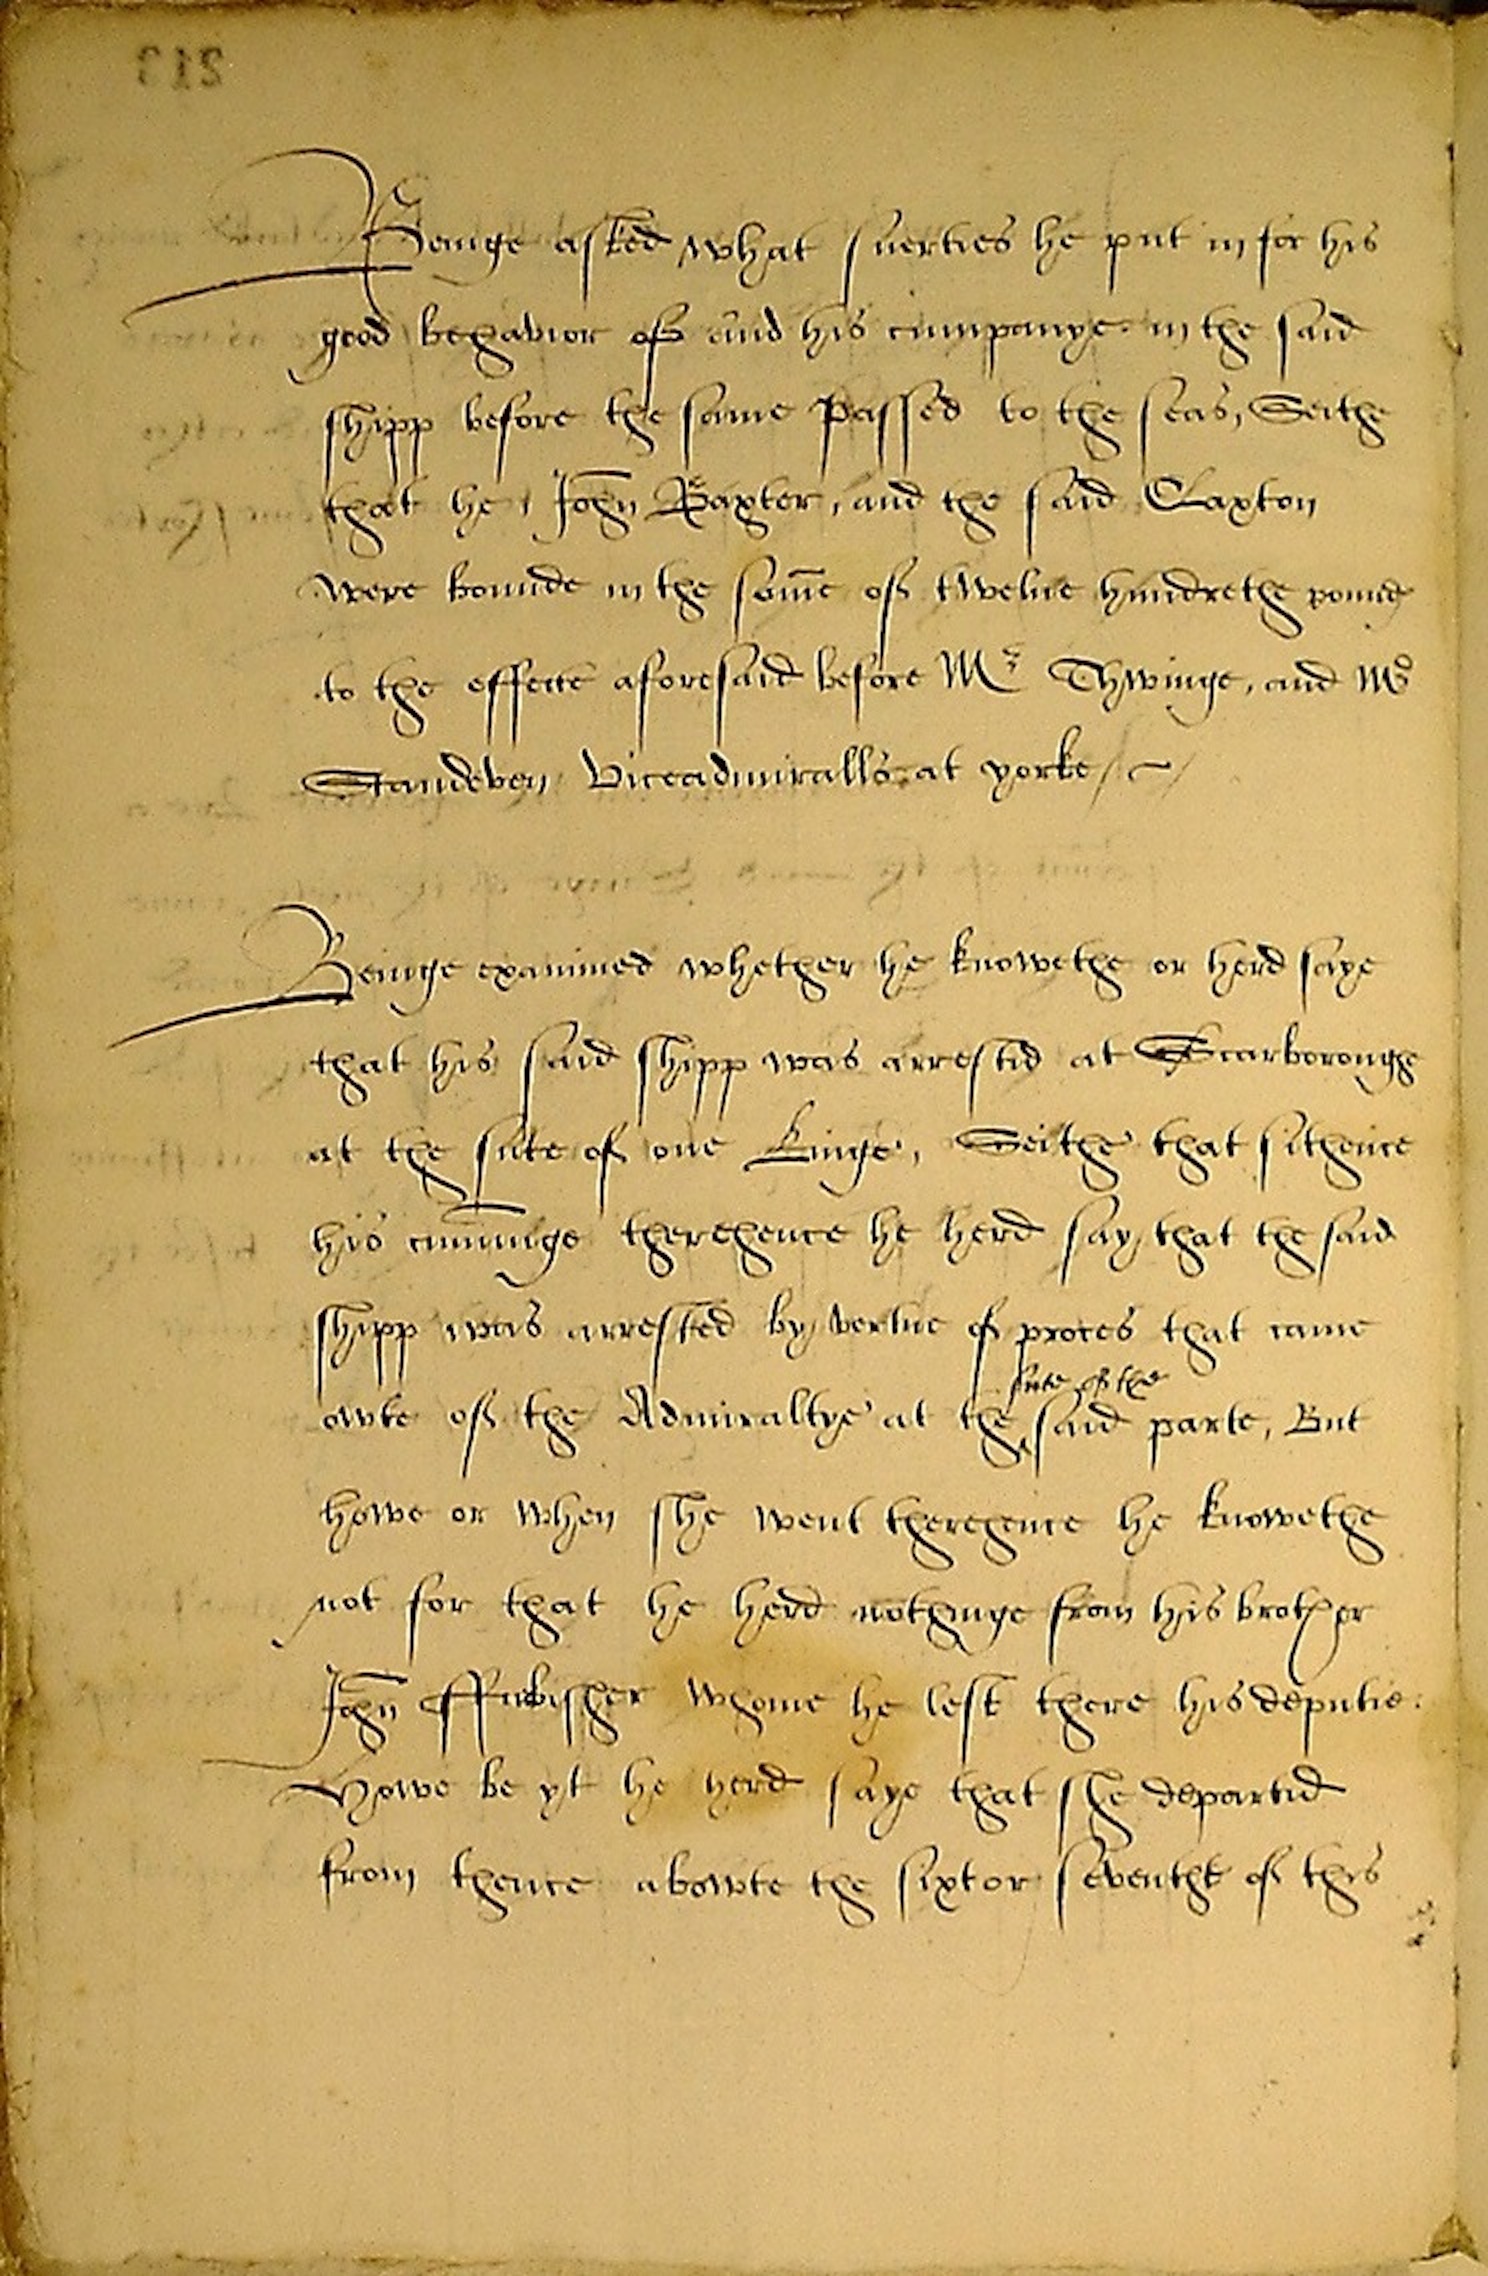 213
Beinge asked what suerties he put in for his
good behavior of and his cumpanye in the said
shipp before the same passed to the seas, Seithe
that he, John Baxter, and the said Claxton
were bounde in the some of twelue hundrethe pound
to the effecte aforesaid before Mr Thwinge, and Mr
Standeven Viceadmiralls at yorke
Beinge examined whether he knowethe or herd saye
that his said shipp was arrestid at Scarboroughe
at the sute of one Kinge, Seithe that sithence
his cumminge therehence he herd say that the said
shipp was arrested by vertue of proces that came
sute of the
owte of the Admiraltye at the said parte, But
howe or when she went therehence he knowethe
not for that he herd nothinge from his brother
John Ffurbissher whome he left there his deputie.
Howe be yt he herd saye that she departid
from thence abowte the sixt or seventhe of this